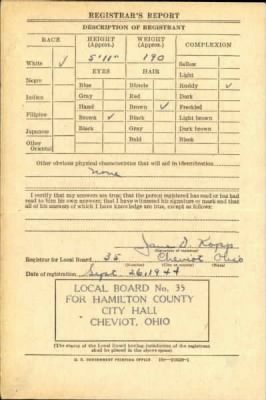 REGISTRAR'S REPORT
DESCRIPTION OF REGISTRANT
RACE HEIGHT (Approx.) WEIGHT (Approx.) COMPLEXION
White ✓ 5'11" 190 Sallow
Light
EYES HAIR Ruddy ✓
Negro Blue Blonde Dark
Indian Gray Red Freckled
Hazel Brown ✓ Light brown
Filipino Brown ✓ Black Dark brown
Japanese Black Gray Black
Other Oriental Bald
Other obvious physical characteristics that will aid in identification
None
I certify that my answers are true; that the person registered has read or has had
read to him his own answers; that I have witnessed his signature or mark and that
all of his answers of which I have knowledge are true, except as follows:
D. Kopp
(Signature of registrar)
Registrar for Local Board 35 Cheviot Ohio
(Number) (City or county) (State)
Date of registration Sept. 26, 1944
LOCAL BOARD No. 35
FOR HAMILTON COUNTY
CITY HALL
CHEVIOT, OHIO
(The stamp of the Local Board having jurisdiction of the registrant
shall be placed in the above space)
U. S. GOVERNMENT PRINTING OFFICE